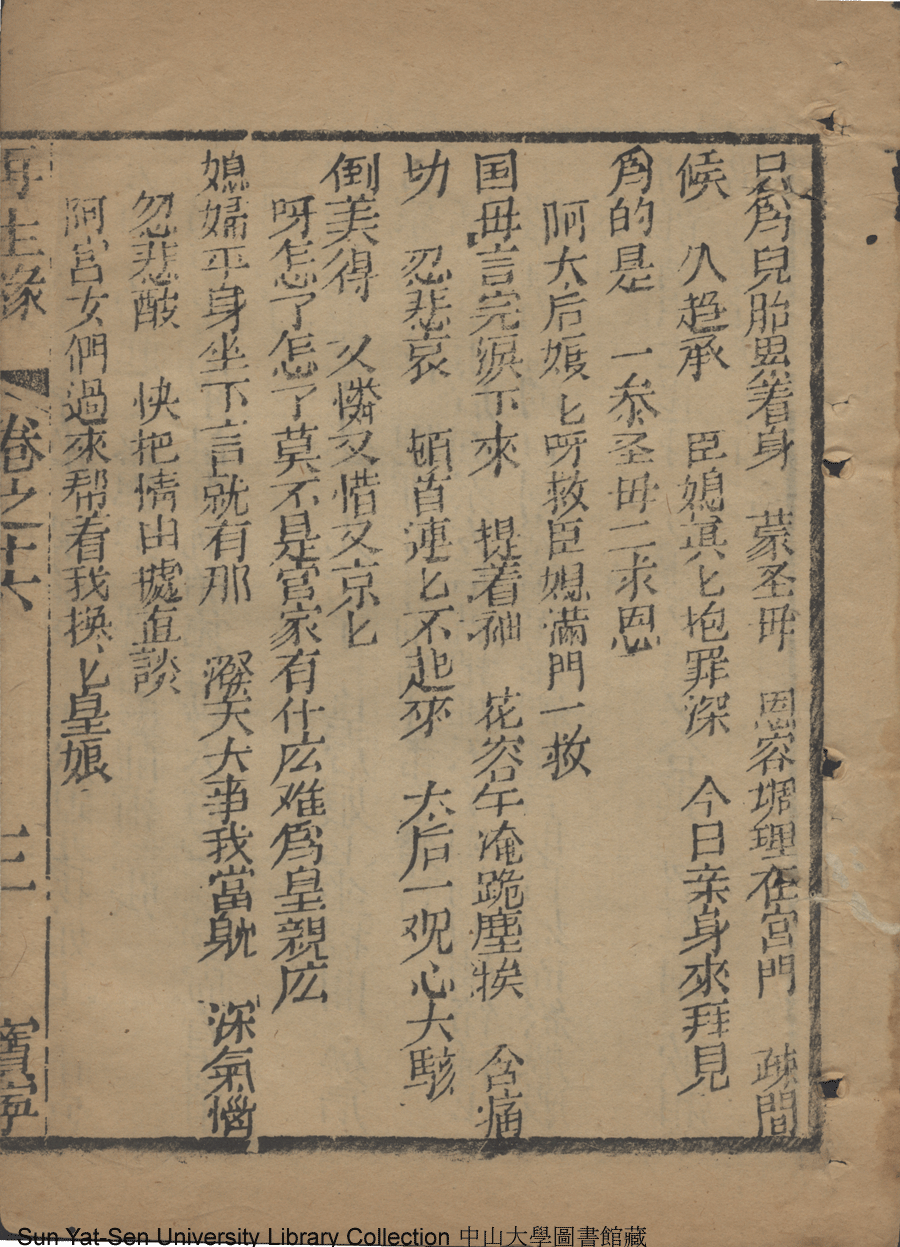 只為兒胎累着身　蒙圣毋　恩容堋理在宮門　疎間
候　久趋承　臣媳真匕抱罪深　今日亲身來拜見
為的是　一叅圣毋二求恩
阿太后娘匕呀救臣媳滿門一救
国毋言完淚下來　提着袖　花容午淹跪塵挨　含痛
切　忍悲哀　頓首連匕不起來　太后一观心大駭
倒美得　又憐又惜又京匕
呀怎了怎了莫不是官家有什庅难為皇親庅
媳婦平身坐下言就有那　潑天大事我當躭　深氣惱
忽悲酸　快把情由㨿直談
阿宮女們過來帮着我换匕皇娘
再生緣　卷之十六　三　寳寧
Sun Yat-Sen University Library Collection 中山大學圖書館藏